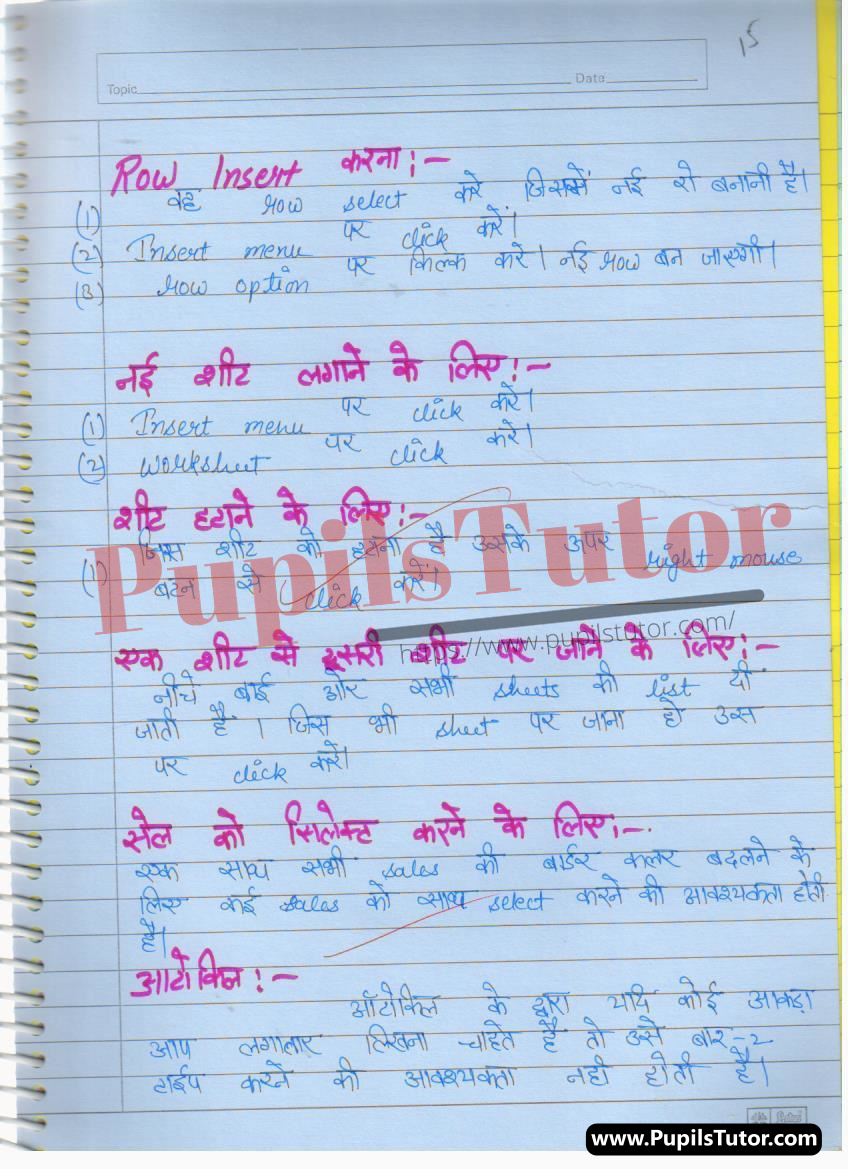 15
Topic Date
Row Insert करना:-
(1) वह row select करे जिससें नई रो बनानी है।
(2) Insert menu पर click करें।
(3) row option पर किल्क करे। नई row बन जाएगी।
नई शीट लगाने के लिए:-
(1) Insert menu पर click करें।
(2) worksheet पर click करें।
शीट हटाने के लिए:-
(1) जिस शीट को हटाना है उसके अपर right mouse
बटन से click करें।
PupilsTutor
https://www.pupilstutor.com/
एक शीट से दूसरी शीट पर जाने के लिए:-
नीचे बाई ओर सभी sheets की list दी
जाती है। जिस भी sheet पर जाना हो उस
पर click करें।
सेल को सिलेक्ट करने के लिए:-
एक साथ सभी sales की बार्डर कलर बदलने के
लिए कई sales को साथ select करने की आवश्यकता होती
है।
आटोफिल:-
ऑटोफिल के द्वारा यदि कोई आकड़ा
आप लगातार लिखना चाहेते है तो उसे बार-2
टाईप करने की आवश्यकता नही होती है।
www.PupilsTutor.com